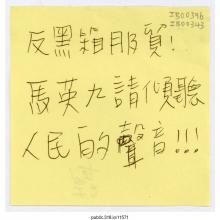 IB00396
IB00343
反黑箱服貿!
馬英九請傾聽
人民的聲音!!!
public.318.io/11571